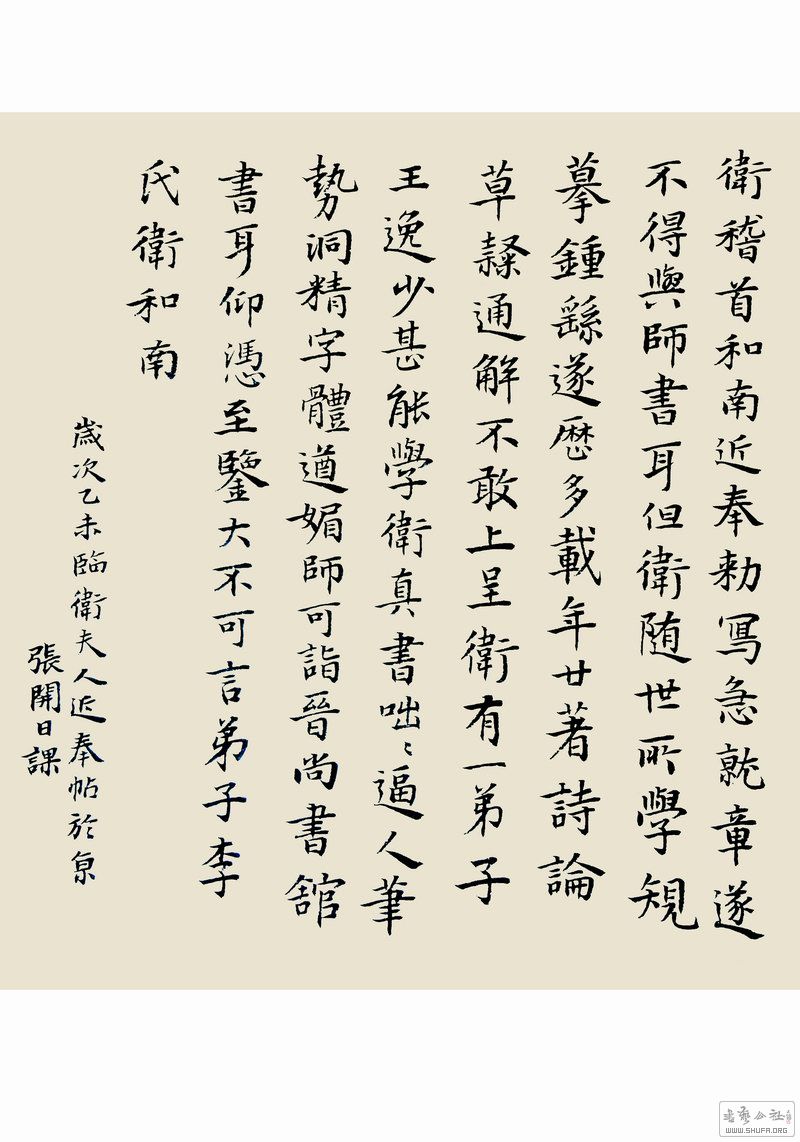 衛稽首和南近奉勅寫急就章遂
不得與師書耳但衛随世所學規
摹鍾繇遂歷多載年廿著詩論
草隸通解不敢上呈衛有一弟子
王逸少甚能學衛真書咄〻逼人筆
勢洞精字體遒媚師可詣晉尚書舘
書耳仰憑至鑒大不可言弟子李
氏衛和南
歲次乙未臨衛夫人近奉帖於京
張開日課
書藝公社
WWW.SHUFA.ORG